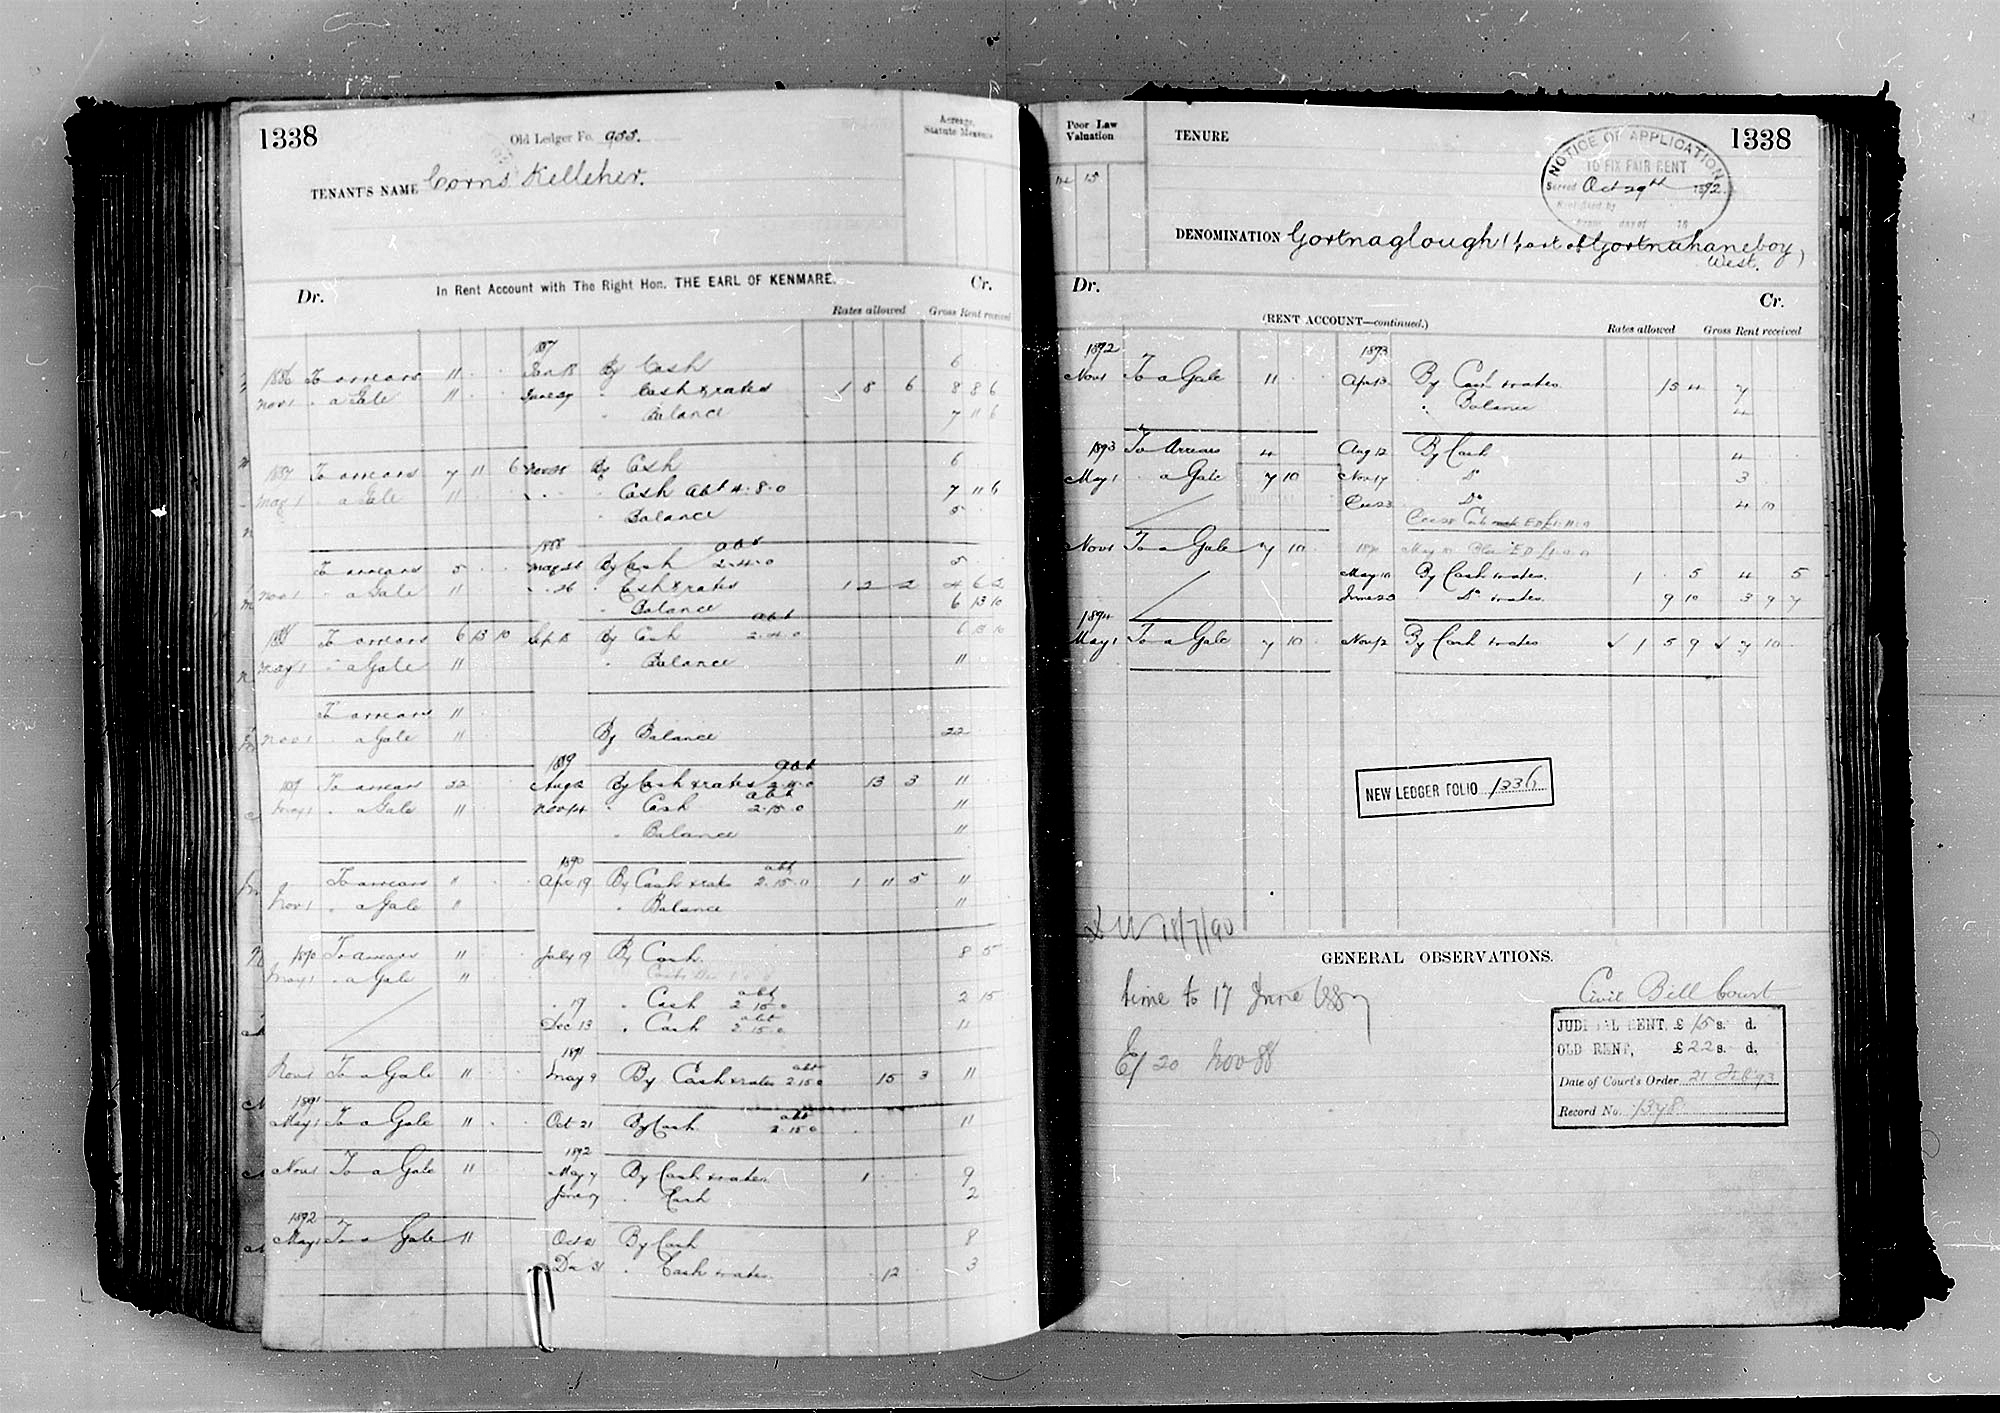 1338
Old Ledger Fo. 955.
Acreage, Statute Measure
TENANT'S NAME Corns Kelleher.
In Rent Account with The Right Hon. THE EARL OF KENMARE.
Dr. Cr.
Rates allowed Gross Rent received
1887
1886 To arrears 11 Jan 18 By Cash 6
Nov 1 " a Gale 11 June 29 " Cash & rates 1 8 6 8 8 6
" Balance 7 11 6
1887 To arrears 7 11 6 Nov 25 By Cash 6
May 1 " a Gale 11 " " Cash abt 4.8.0 7 11 6
" Balance 5
1888 abt
To arrears 5 May 26 By Cash 2.4.0 5
Nov 1 " a Gale 11 " 26 " Cash & rates 1 2 2 4 6 2
" Balance 6 13 10
abt
1888 To arrears 6 13 10 Sep 18 By Cash 2.4.0 6 13 10
May 1 " a Gale 11 " Balance 11
To arrears 11
Nov 1 " a Gale 11 By Balance 22
1889 abt
1889 To arrears 22 Aug 2 By Cash & rates 13 3 11
abt
May 1 " a Gale 11 Nov 14 " Cash 2.15.0 11
" Balance 11
1890 abt
To arrears 11 Apr 19 By Cash & rates 2.15.0 1 11 5 11
Nov 1 " a Gale 11 " Balance 11
1890 To arrears 11 July 19 By Cash 8 5
May 1 " a Gale 11
abt
" 19 " Cash 2 15 0 2 15
abt
Dec 13 " Cash 2 15 0 11
1891
Nov 1 To a Gale 11 May 9 By Cash & rates abt 2 15 0 15 3 11
1891
May 1 To a Gale 11 Oct 21 By Cash abt 2 15 0 11
1892
Nov 1 To a Gale 11 May 7 By Cash & rates 1 9
June 7 " Cash 2
1892
May 1 To a Gale 11 Oct 21 By Cash 8
Dec 31 " Cash & rates 12 3
Poor Law Valuation
15
TENURE
1338
NOTICE OF APPLICATION
TO FIX FAIR RENT
Served Oct 29th 1892
day of 18
DENOMINATION Gortnaglough (part of Gortnahaneboy West.)
Dr. Cr.
(RENT ACCOUNT—continued.)
Rates allowed Gross Rent received
1892 1893
Nov 1 To a Gale 11 Apr 13 By Cash & rates 15 4 7
" Balance 4
1893 To Arrears 4 Aug 12 By Cash 4
May 1 " a Gale 7 10 Nov 17 " Do 3
Dec 23 " Do 4 10
Nov 1 To a Gale 7 10
May 10 By Cash & rates 1 . 5 4 5
June 23 " Do & rates 9 10 3 9 7
1894
May 1 To a Gale 7 10 Nov 12 By Cash & rates 1 5 9 7 10
NEW LEDGER FOLIO 1336
18/7/90
GENERAL OBSERVATIONS.
time to 17 June 1887
Ej 20 Nov 88
Civil Bill Court
JUDICIAL RENT, £ 15 s. d.
OLD RENT, £ 22 s. d.
Date of Court's Order 21 Feb '93
Record No. 1378